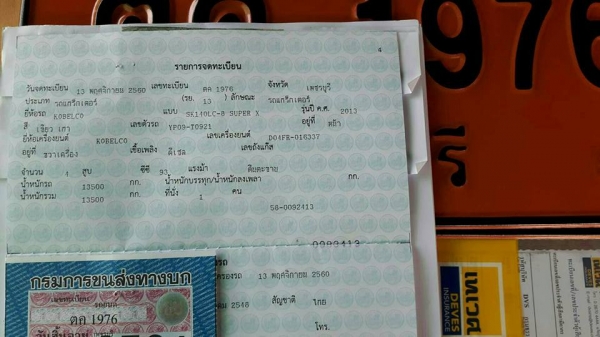 ตค 1976
4
รายการจดทะเบียน
วันจดทะเบียน 13 พฤศจิกายน 2560 เลขทะเบียน ตค 1976 จังหวัด เพชรบุรี
ประเภท รถแทร็กเตอร์ (รย. 13) ลักษณะ รถแทร็กเตอร์
ยี่ห้อรถ KOBELCO แบบ SK140LC-8 SUPER X รุ่นปี ค.ศ. 2013
สี เขียว เทา เลขตัวรถ YP09-T0921 อยู่ที่
ยี่ห้อเครื่องยนต์ KOBELCO เลขเครื่องยนต์ D04FR-016337
อยู่ที่ ขวาเครื่อง เชื้อเพลิง ดีเซล เลขถังแก๊ส
จำนวน 4 สูบ ซีซี 93 แรงม้า
น้ำหนักรถ 13500 กก. น้ำหนักบรรทุก/น้ำหนักลงเพลา กก.
น้ำหนักรวม 13500 กก. ที่นั่ง 1 คน
56-0092413
0092413
13 พฤศจิกายน 2560
2548 สัญชาติ ไทย
โทร.
กรมการขนส่งทางบก
ตค 1976
วันสิ้นอายุ
รี
เทเวศ
DEVES
INSURANCE